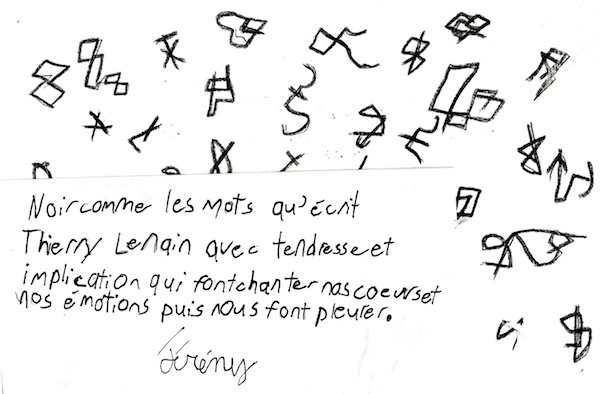 Noir comme les mots qu'écrit
Thierry Lenain avec tendresse et
implication qui font chanter nos coeurs et
nos émotions puis nous font pleurer.
Jérémy